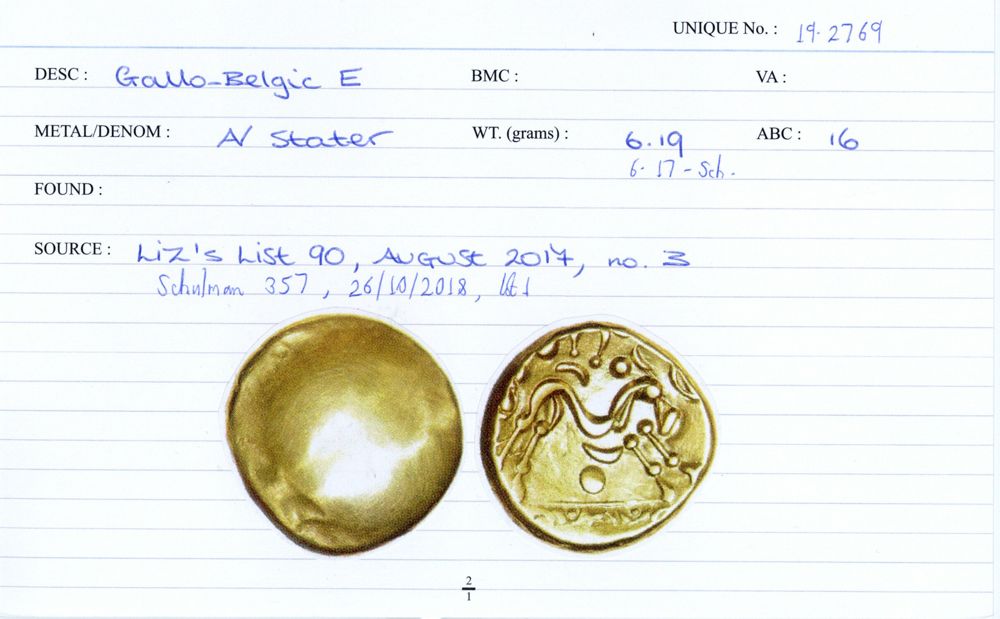 UNIQUE No. : 19.2769
DESC : Gallo-Belgic E BMC : VA :
METAL/DENOM : AV Stater WT. (grams) : 6.19 ABC : 16
6.17 - Sch.
FOUND :
SOURCE : Liz's List 90, August 2017, no. 3
Schulman 357, 26/10/2018, lot 1
2
1